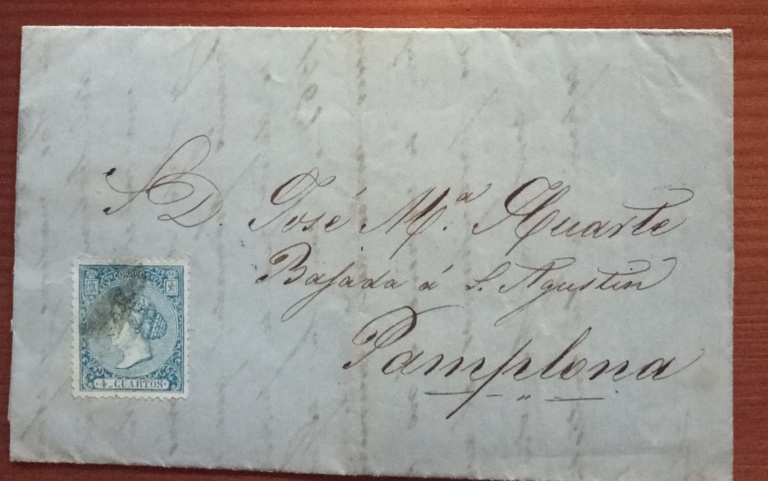 S. D. José M.ª Huarte
Bajada á S. Agustin
Pamplona
CORREOS
4 CUARTOS